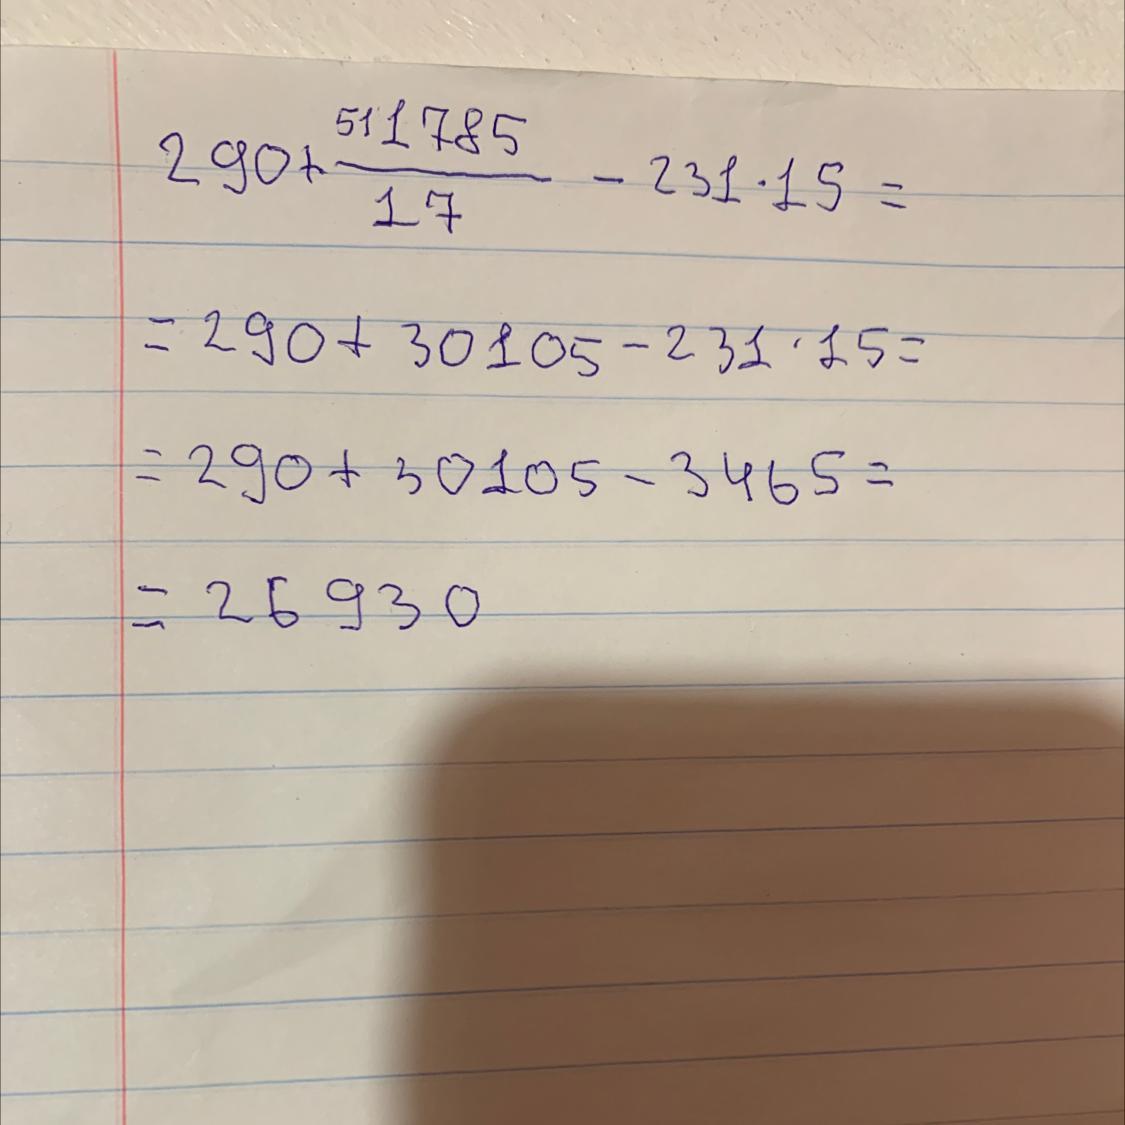 290+\frac{511785}{17} - 231·15 =
= 290+ 30105 - 231·15=
= 290+ 30105 - 3465 =
= 26930